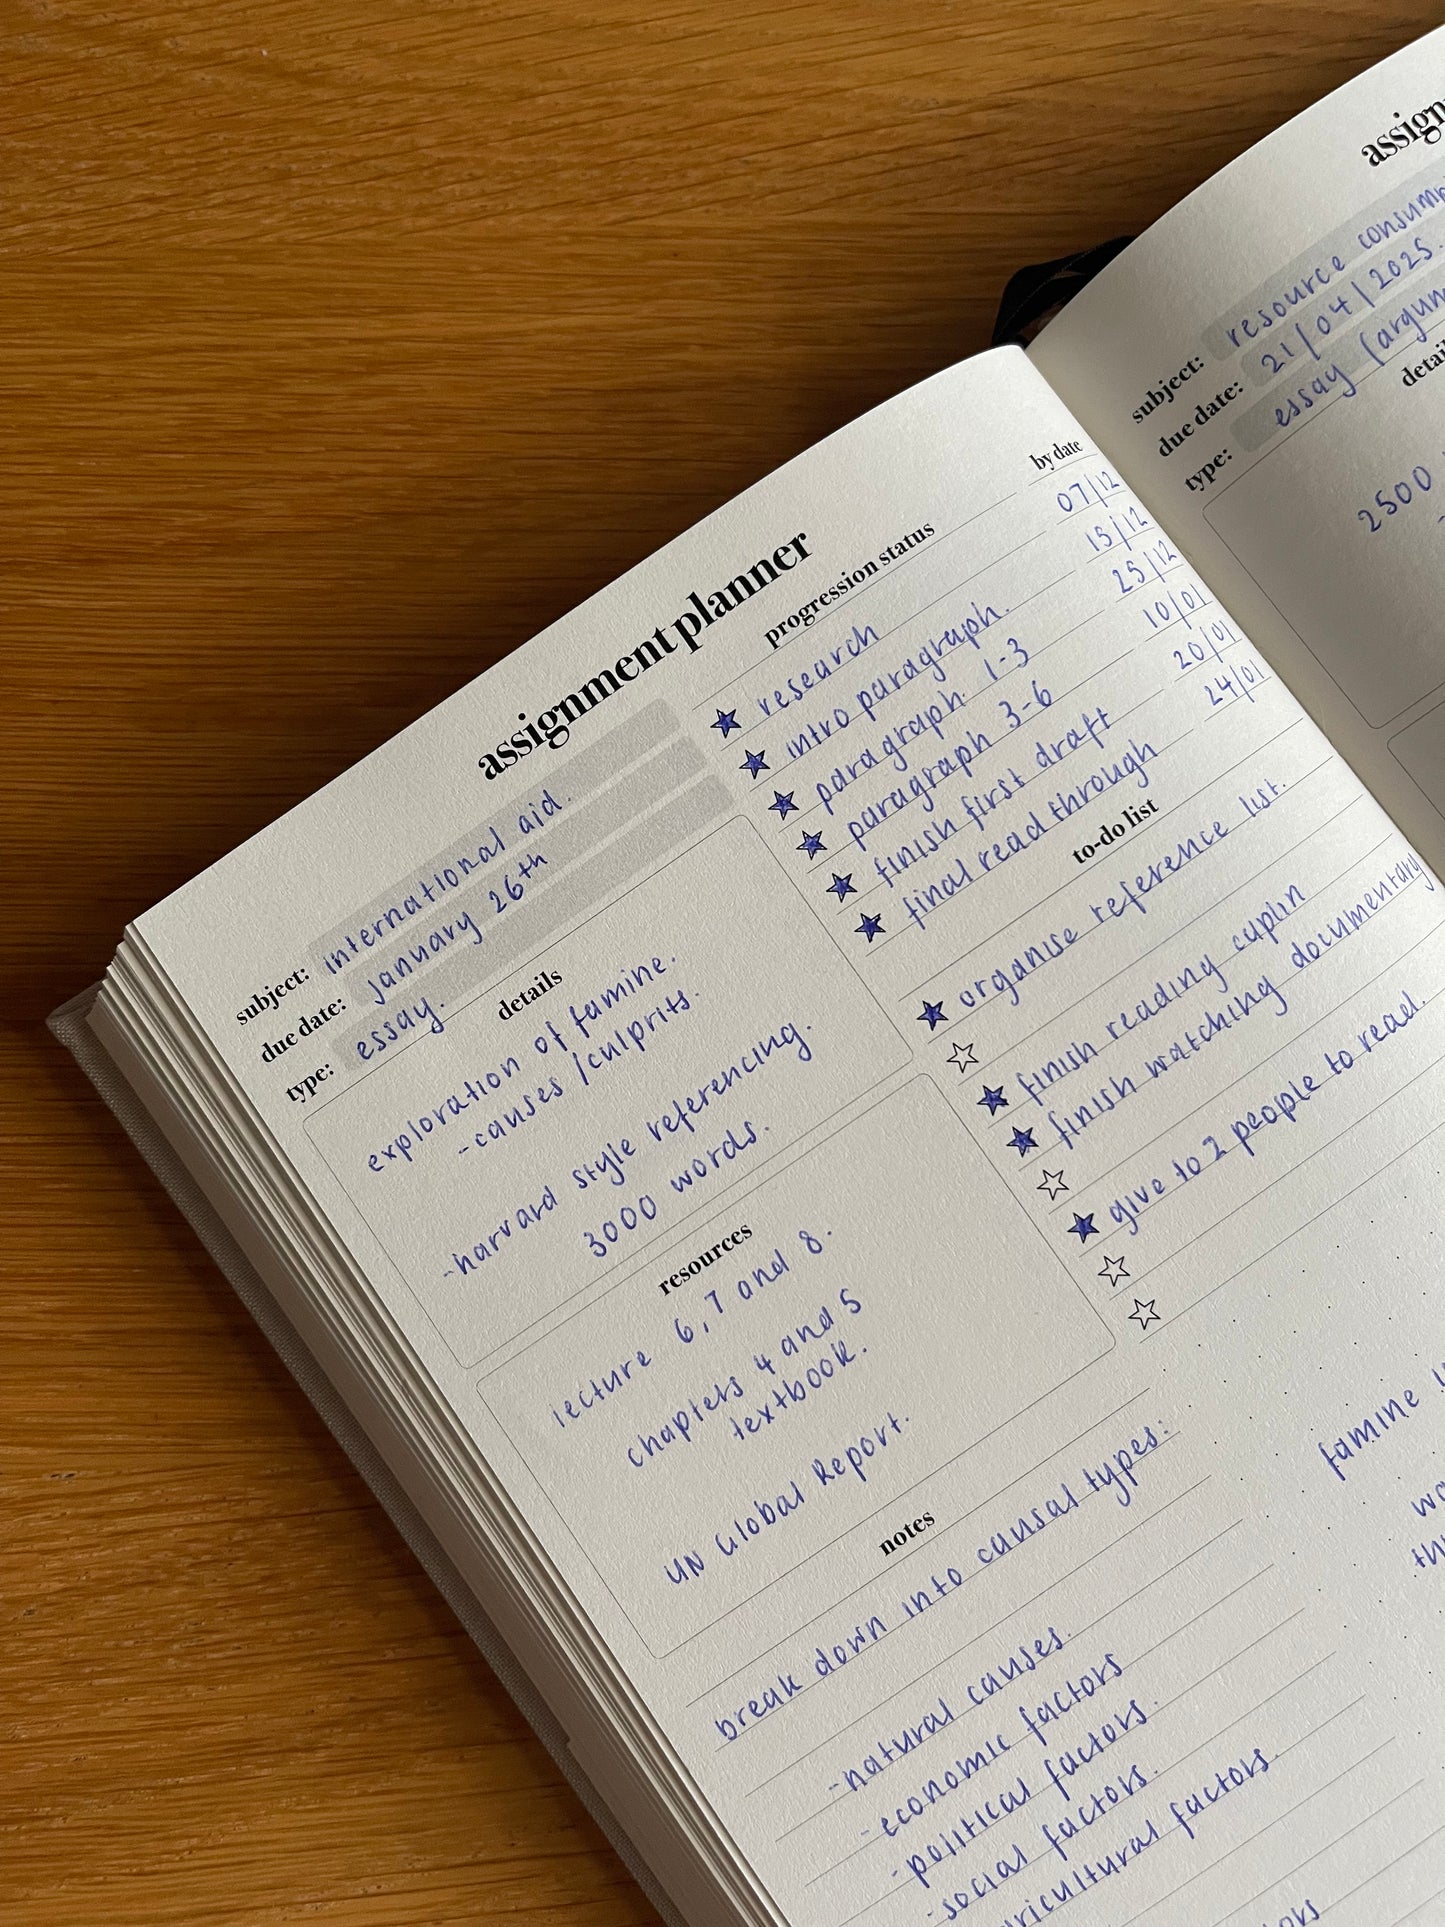 assignment planner
subject: international aid.
due date: january 26th
type: essay.
details
exploration of famine.
- causes / culprits.
- harvard style referencing.
3000 words.
resources
lecture 6, 7 and 8.
chapters 4 and 5
textbook.
UN Global Report.
progression status by date
research 07/12
intro paragraph. 15/12
paragraph. 1-3 25/12
paragraph 3-6 10/01
finish first draft 20/01
final read through 24/01
to-do list
organise reference list.
finish reading
finish watching documentary
give to 2 people to read.
notes
break down into causal types:
- natural causes.
- economic factors
- political factors.
- social factors.
factors.
famine
subject: resource
due date: 21/04/2025.
type: essay
2500